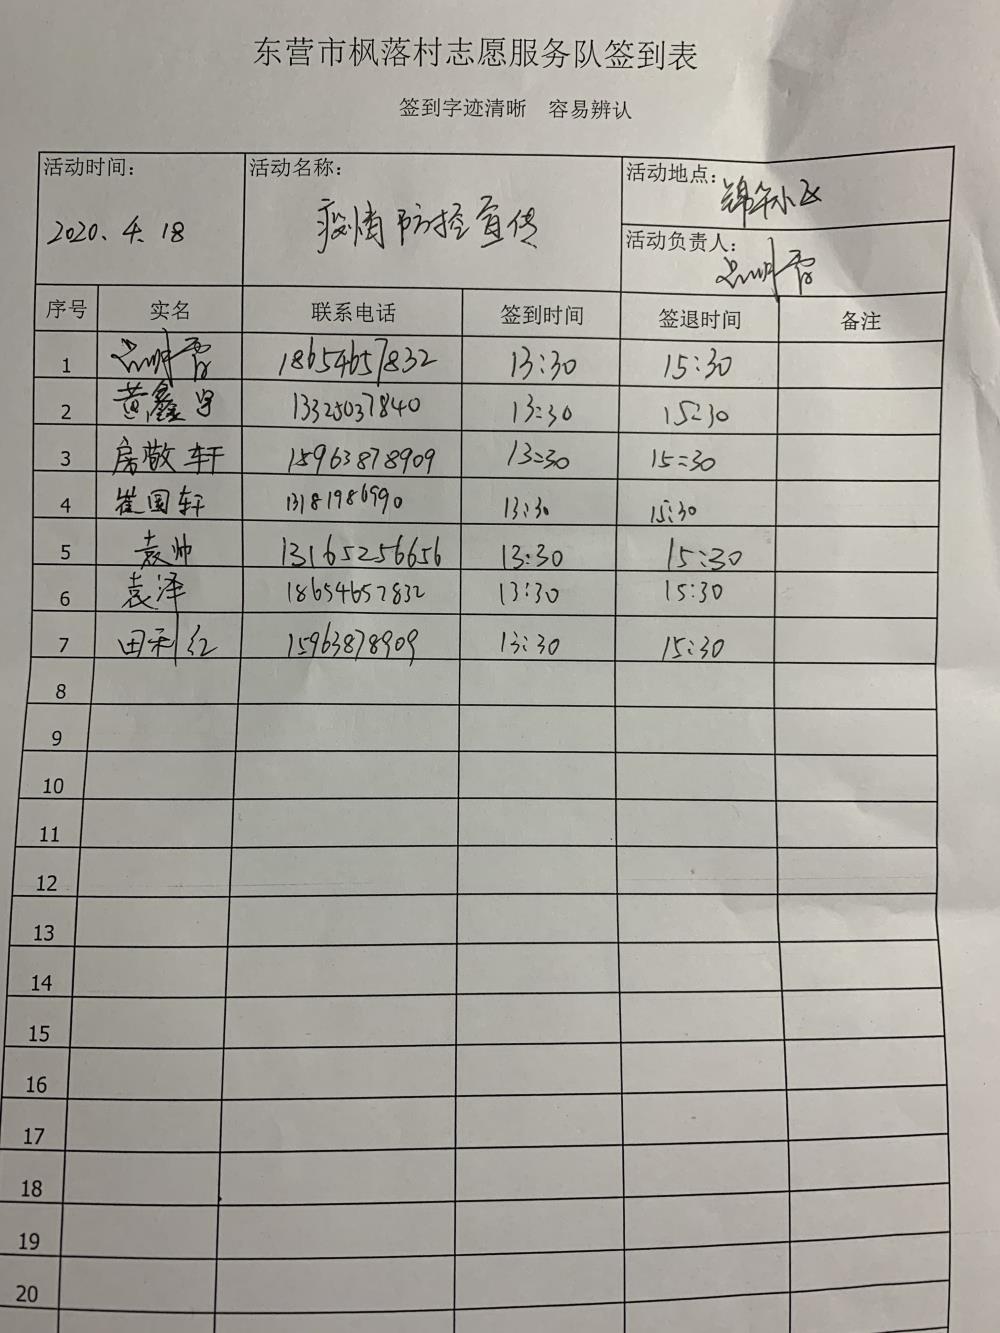 东营市枫落村志愿服务队签到表
签到字迹清晰 容易辨认
活动时间: 2020.4.18
活动名称: 疫情防控宣传
活动地点: 锦华小区
活动负责人:
序号 实名 联系电话 签到时间 签退时间 备注
1 18654657832 13:30 15:30
2 黄鑫 13325037840 13:30 15:30
3 房敬轩 15963878909 13:30 15:30
4 崔国轩 13181986990 13:30 15:30
5 袁帅 13165256656 13:30 15:30
6 袁泽 18654657832 13:30 15:30
7 田利红 15963878909 13:30 15:30
8
9
10
11
12
13
14
15
16
17
18
19
20